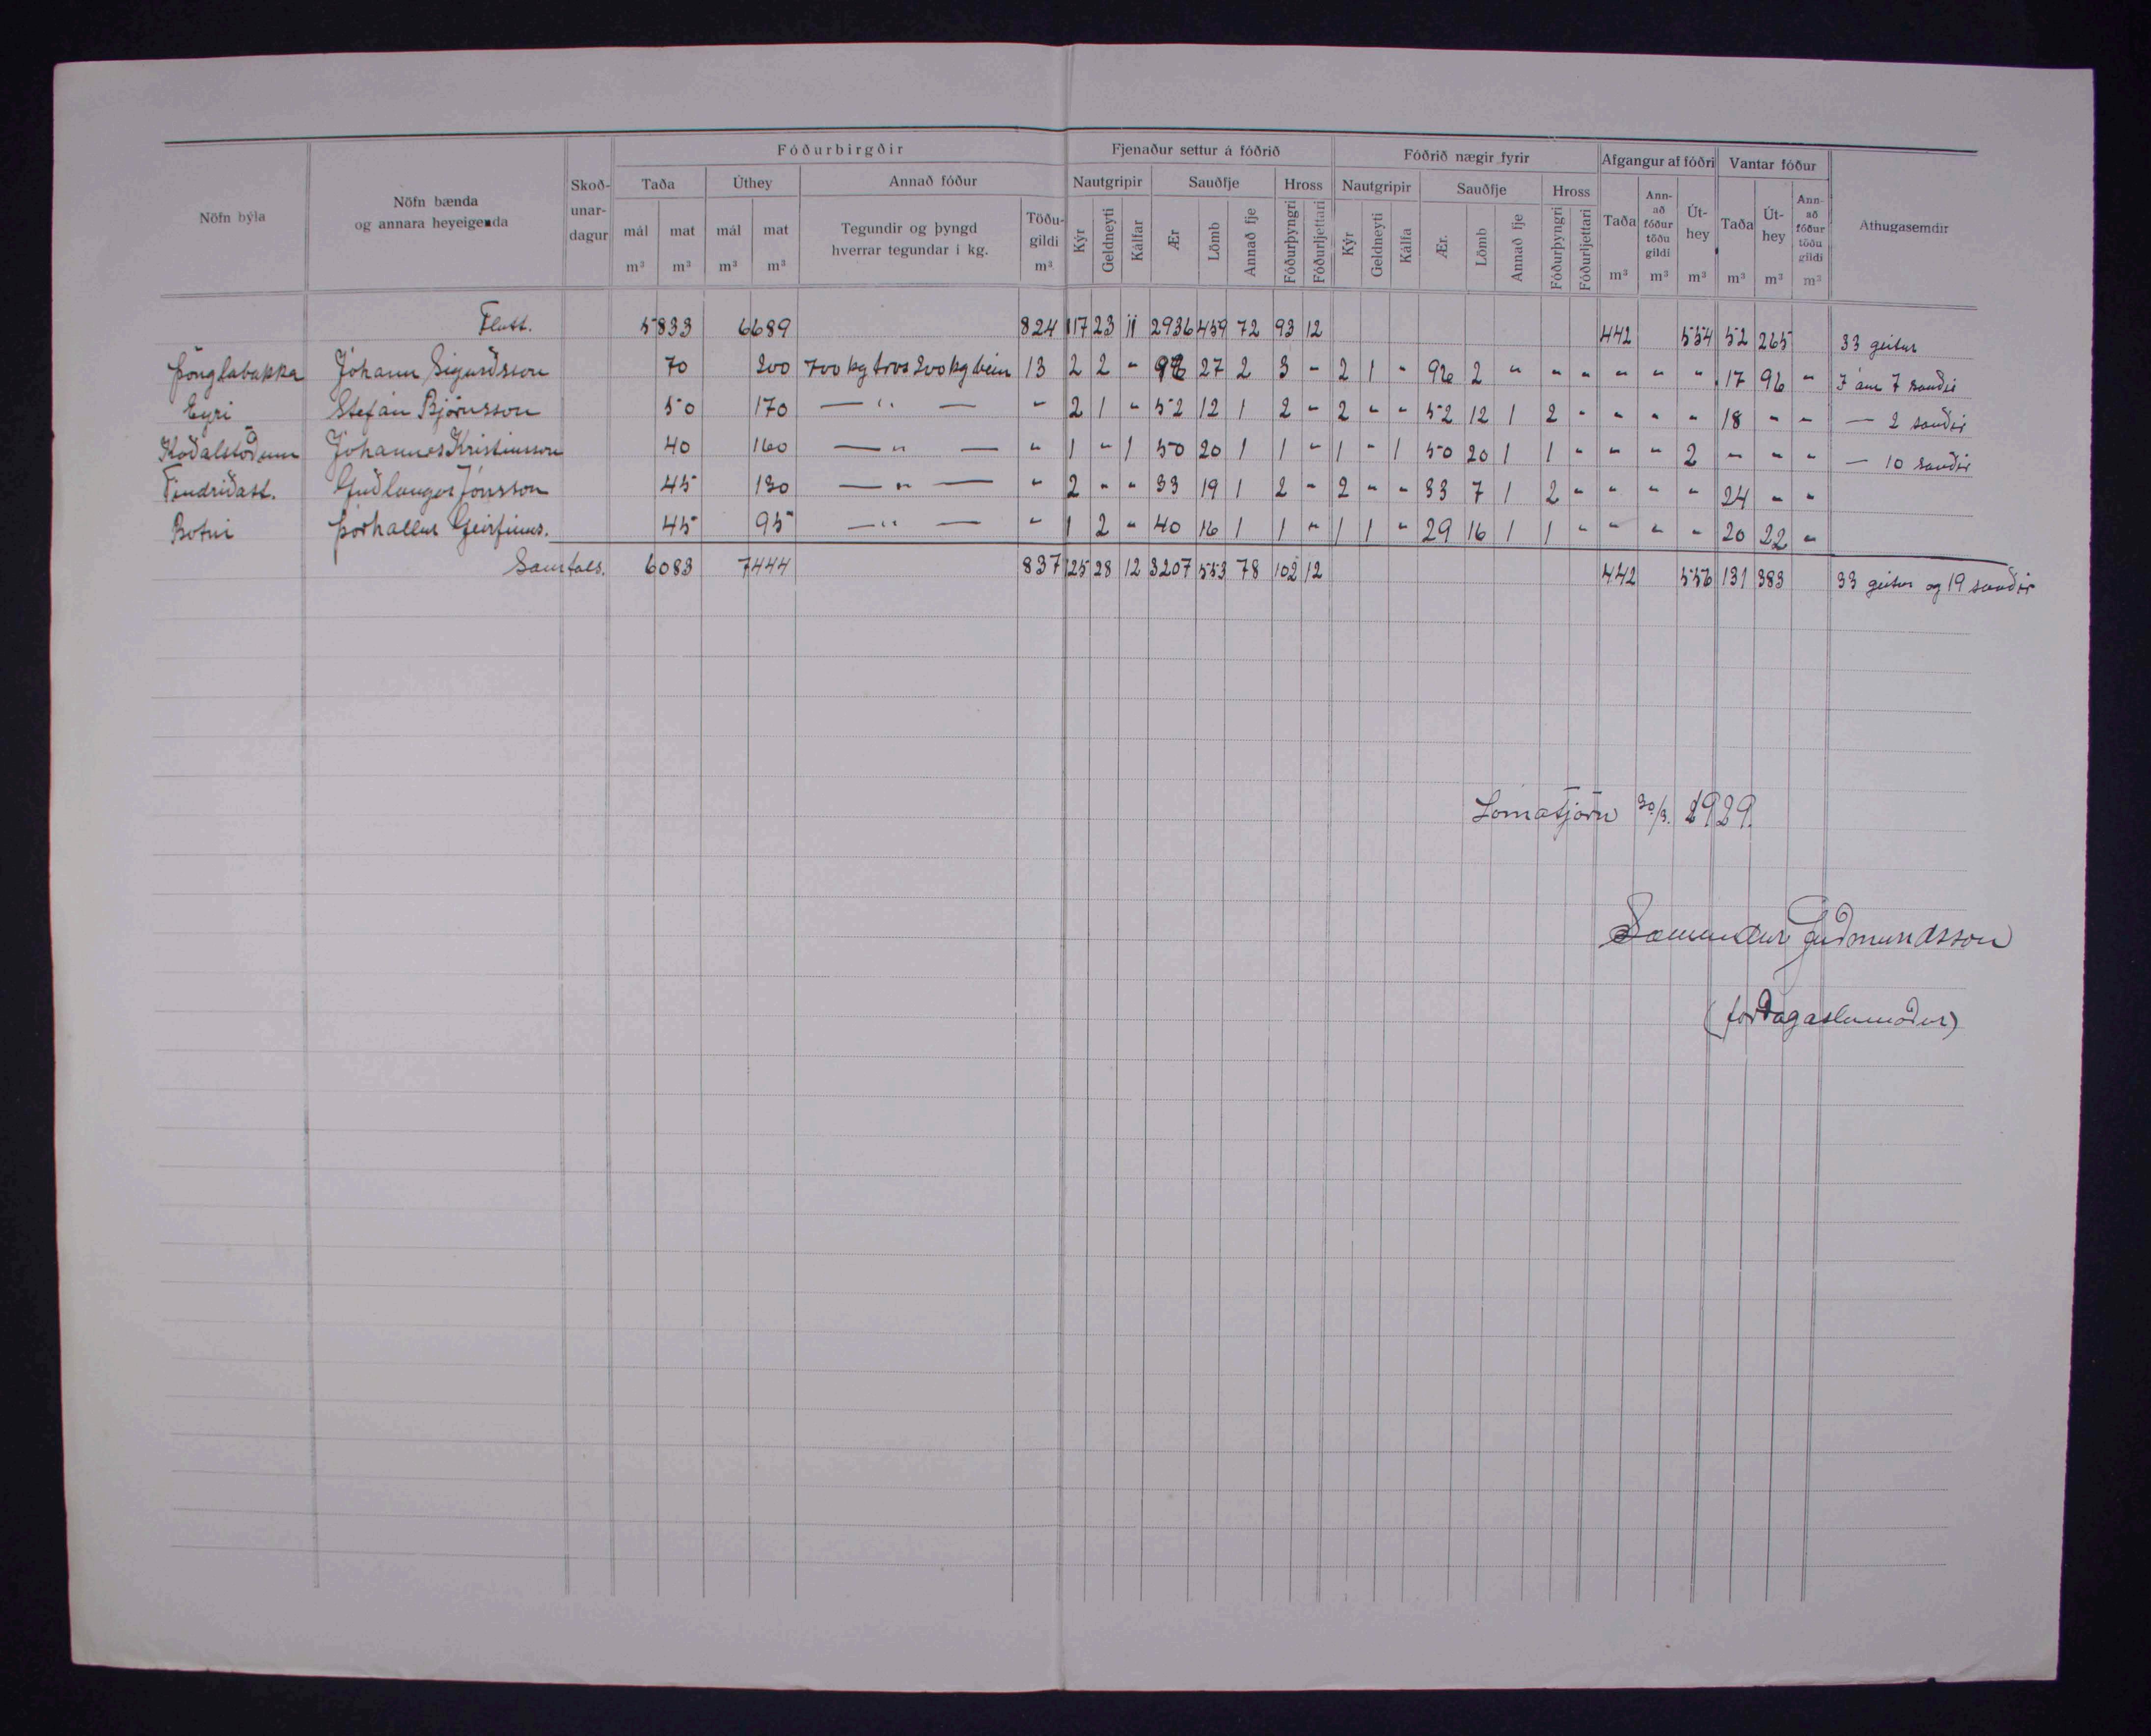 Nöfn býla | Nöfn bænda og annara heyeigenda | Skoð-unar-dagur | Fóðurbirgðir | Fjenaður settur á fóðrið | Fóðrið nægir fyrir | Afgangur af fóðri | Vantar fóður | Athugasemdir
Taða | Úthey | Annað fóður | Nautgripir | Sauðfje | Hross | Nautgripir | Sauðfje | Hross
mál m³ | mat m³ | mál m³ | mat m³ | Tegundir og þyngd hverrar tegundar í kg. | Töðu-gildi m³ | Kýr | Geldneyti | Kálfar | Ær | Lömb | Annað fje | Fóðurþyngri | Fóðurljettari | Kýr | Geldneyti | Kálfa | Ær. | Lömb | Annað fje | Fóðurþyngri | Fóðurljettari | Taða m³ | Ann-að fóður töðu gildi m³ | Út-hey m³ | Taða m³ | Út-hey m³ | Ann-að fóður töðu gildi m³
Flutt. 5833 6689 824 117 23 11 2936 459 72 93 12 442 554 52 265 33 geitur
Þönglabakka Jóhann Sigurðsson 70 200 700 kg tros 200 kg bein 13 2 2 - 96 27 2 3 - 2 1 - 96 2 " - - - - - 17 96 - 7 ám 7 sauðir
Eyri Stefán Björnsson 50 170 — " — - 2 1 - 52 12 1 2 - 2 - - 52 12 1 2 - - - - 18 - - — 2 sauðir
Kaðalstöðum Jóhannes Kristinsson 40 160 — " — - 1 - 1 50 20 1 1 - 1 - 1 50 20 1 1 - - - 2 - - - — 10 sauðir
Tindriðast. Guðlaugur Jónsson 45 130 — " — - 2 - - 33 19 1 2 - 2 - - 33 7 1 2 - - - - 24 - -
Botni Þórhallur Geirfinns. 45 95 — " — - 1 2 - 40 16 1 1 - 1 1 - 29 16 1 1 - - - - 20 22 -
Samtals. 6083 7444 837 125 28 12 3207 553 78 102 12 442 556 131 383 33 geitur og 19 sauðir
Lómatjörn 30/3. 1929.
Sæmundur Guðmundsson
(forðagæslumaður)